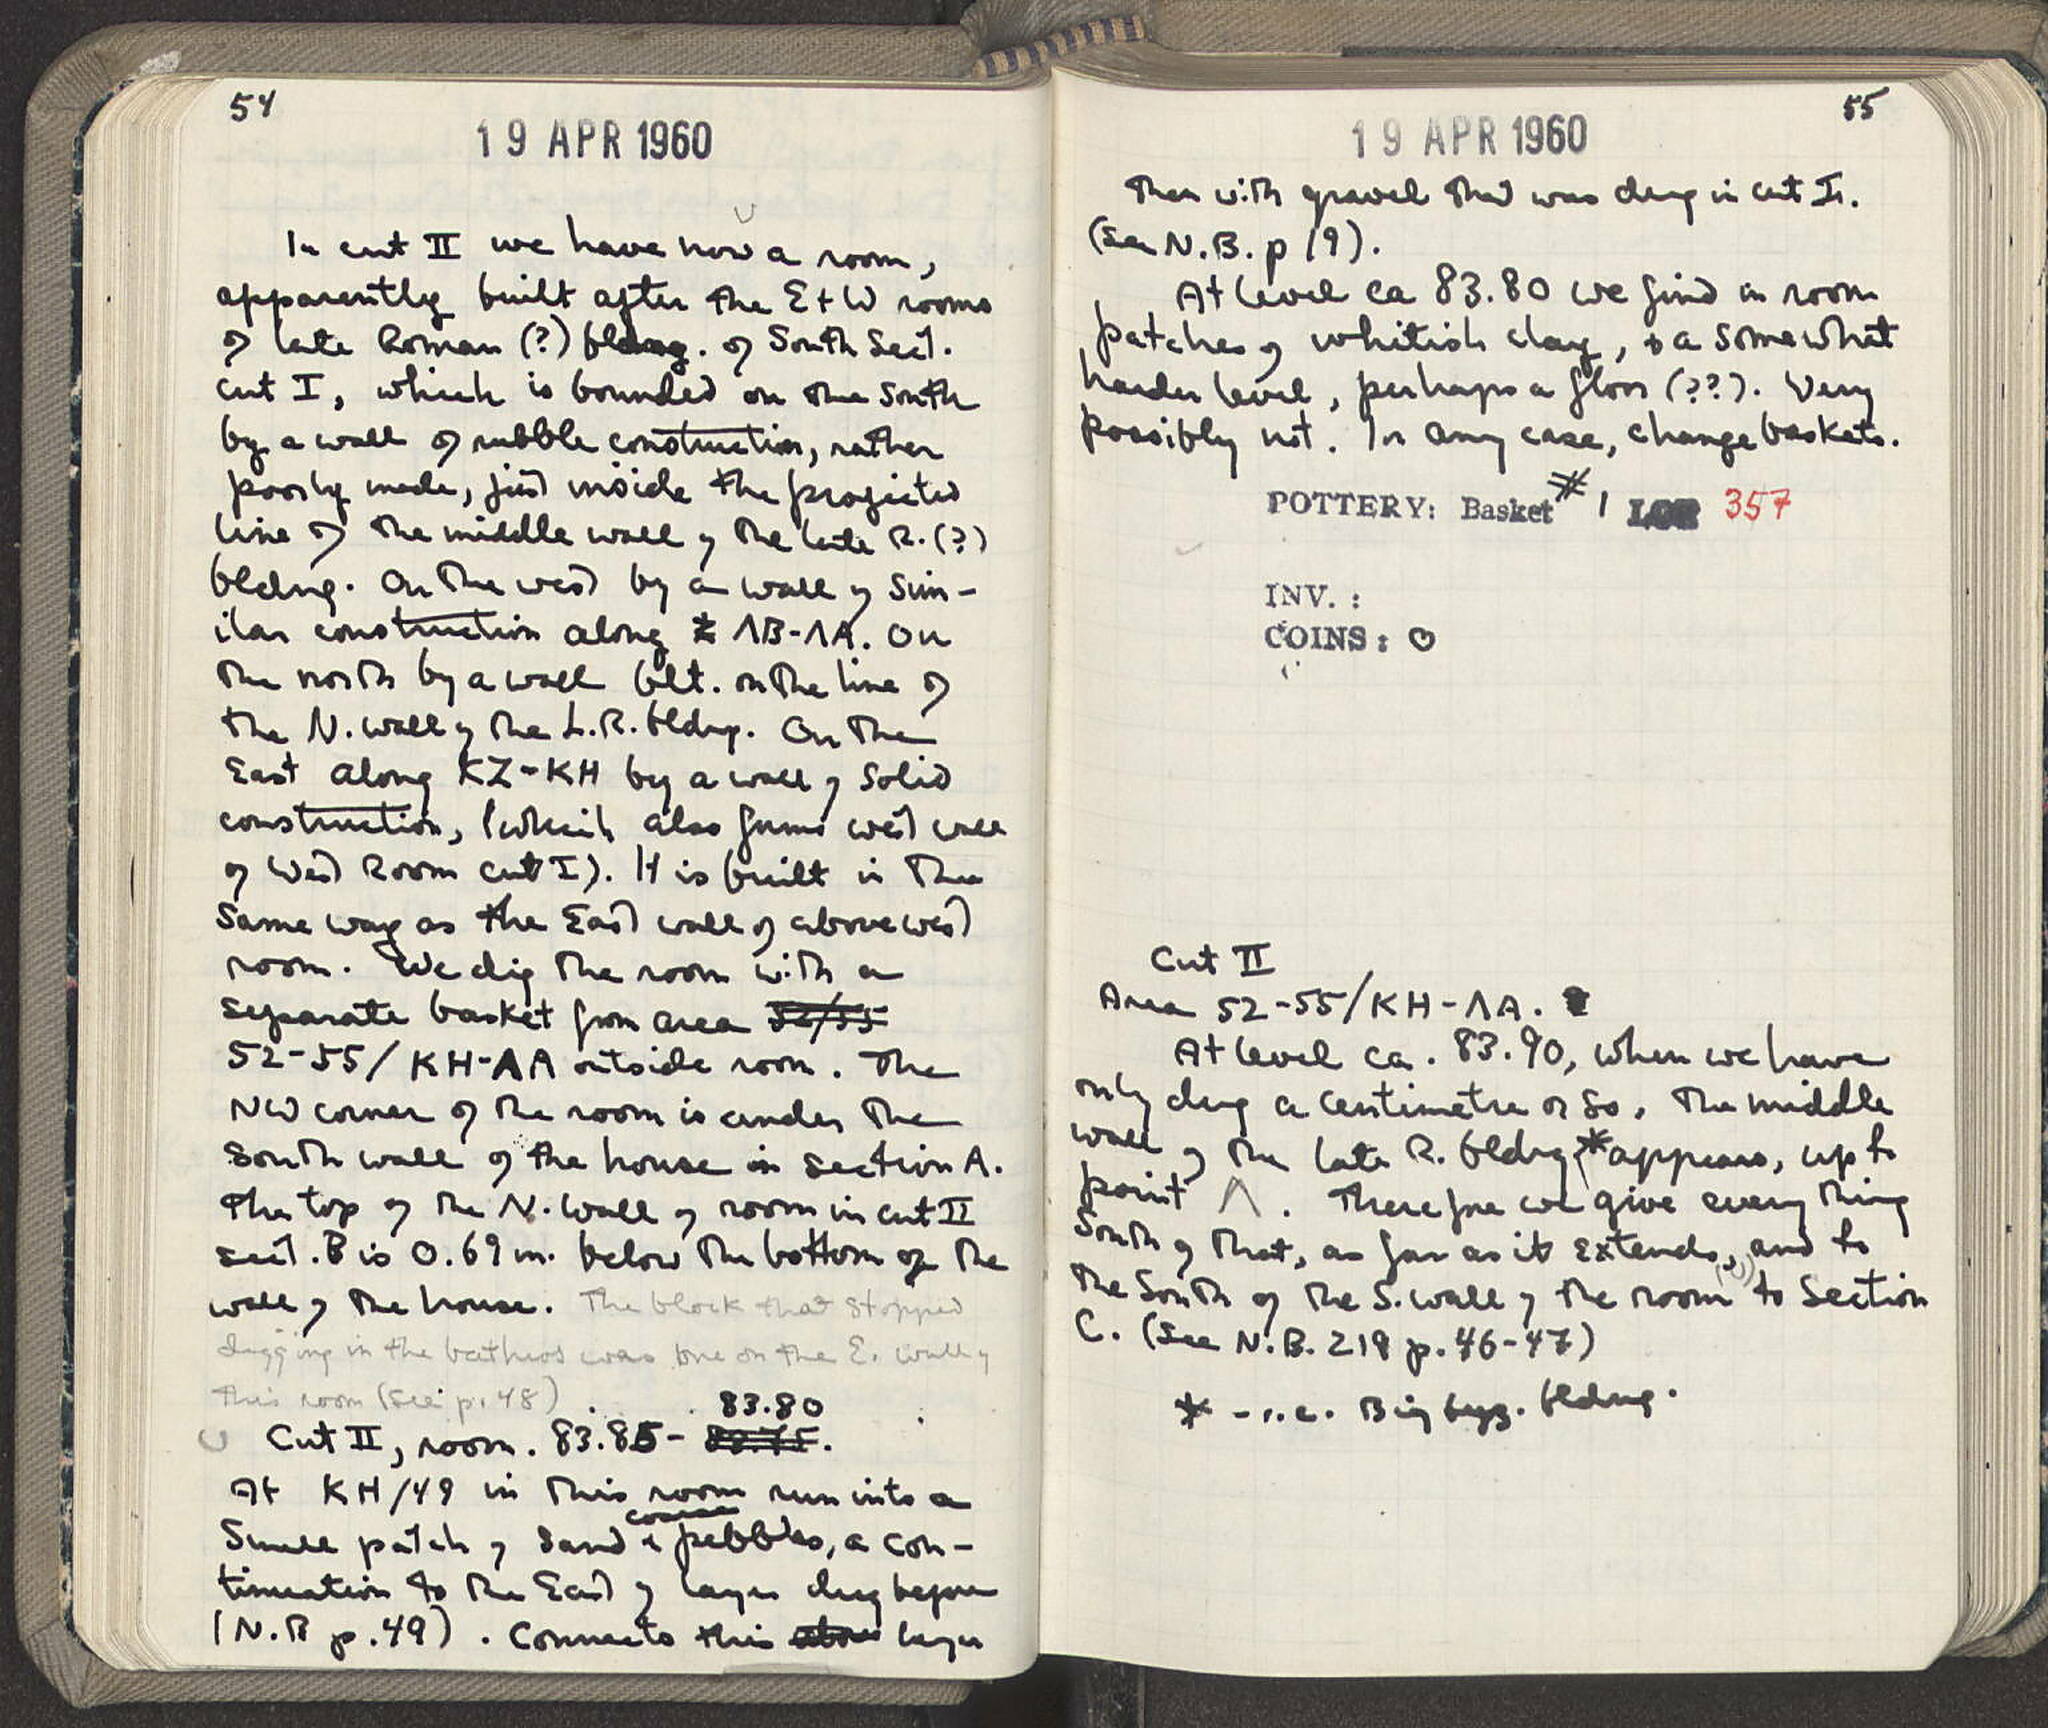 54
19 APR 1960
In cut II we have now a room,
apparently built after the E + W rooms
of late Roman (?) bldng. of South Sect.
cut I, which is bounded on the South
by a wall of rubble construction, rather
poorly made, just inside the projected
line of the middle wall of the late R. (?)
bldng. On the west by a wall of sim-
ilar construction along ΛB-ΛA. On
the north by a wall blt. on the line of
the N. wall of the L.R. bldng. On the
East along KZ-KH by a wall of solid
construction, (which also forms west wall
of West Room cut I). It is built in the
same way as the East wall of above west
room. We dig the room with a
separate basket from area 52/55
52-55/KH-ΛA outside room. The
NW corner of the room is under the
south wall of the house in section A.
The top of the N. wall of room in cut II
sect. B is 0.69 m. below the bottom of the
wall of the house. The block that stopped
digging in the bothros was one on the E. wall of
this room (see p. 48)
83.80
Cut II, room. 83.85 -
At KH/49 in this room run into a
small patch of sand & coarse pebbles, a con-
tinuation to the East of layer dug before
(N.B p. 49). Connects this above layer
55
19 APR 1960
then with gravel that was dug in cut I.
(see N.B. p 19).
At level ca 83.80 we find in room
patches of whitish clay, & a somewhat
harder level, perhaps a floor (??). Very
possibly not. In any case, change baskets.
POTTERY: Basket #1 LOT 357
INV. :
COINS : 0
Cut II
Area 52-55/KH-ΛA.
At level ca. 83.90, when we have
only dug a centimetre or so, the middle
wall of the late R. bldng * appears, up to
point Λ. Therefore we give everything
South of that, as far as it extends, and to
the South of the S. wall of the room to Section
C. (See N.B. 219 p. 46-47)
* - i.e. Big byz. bldng.